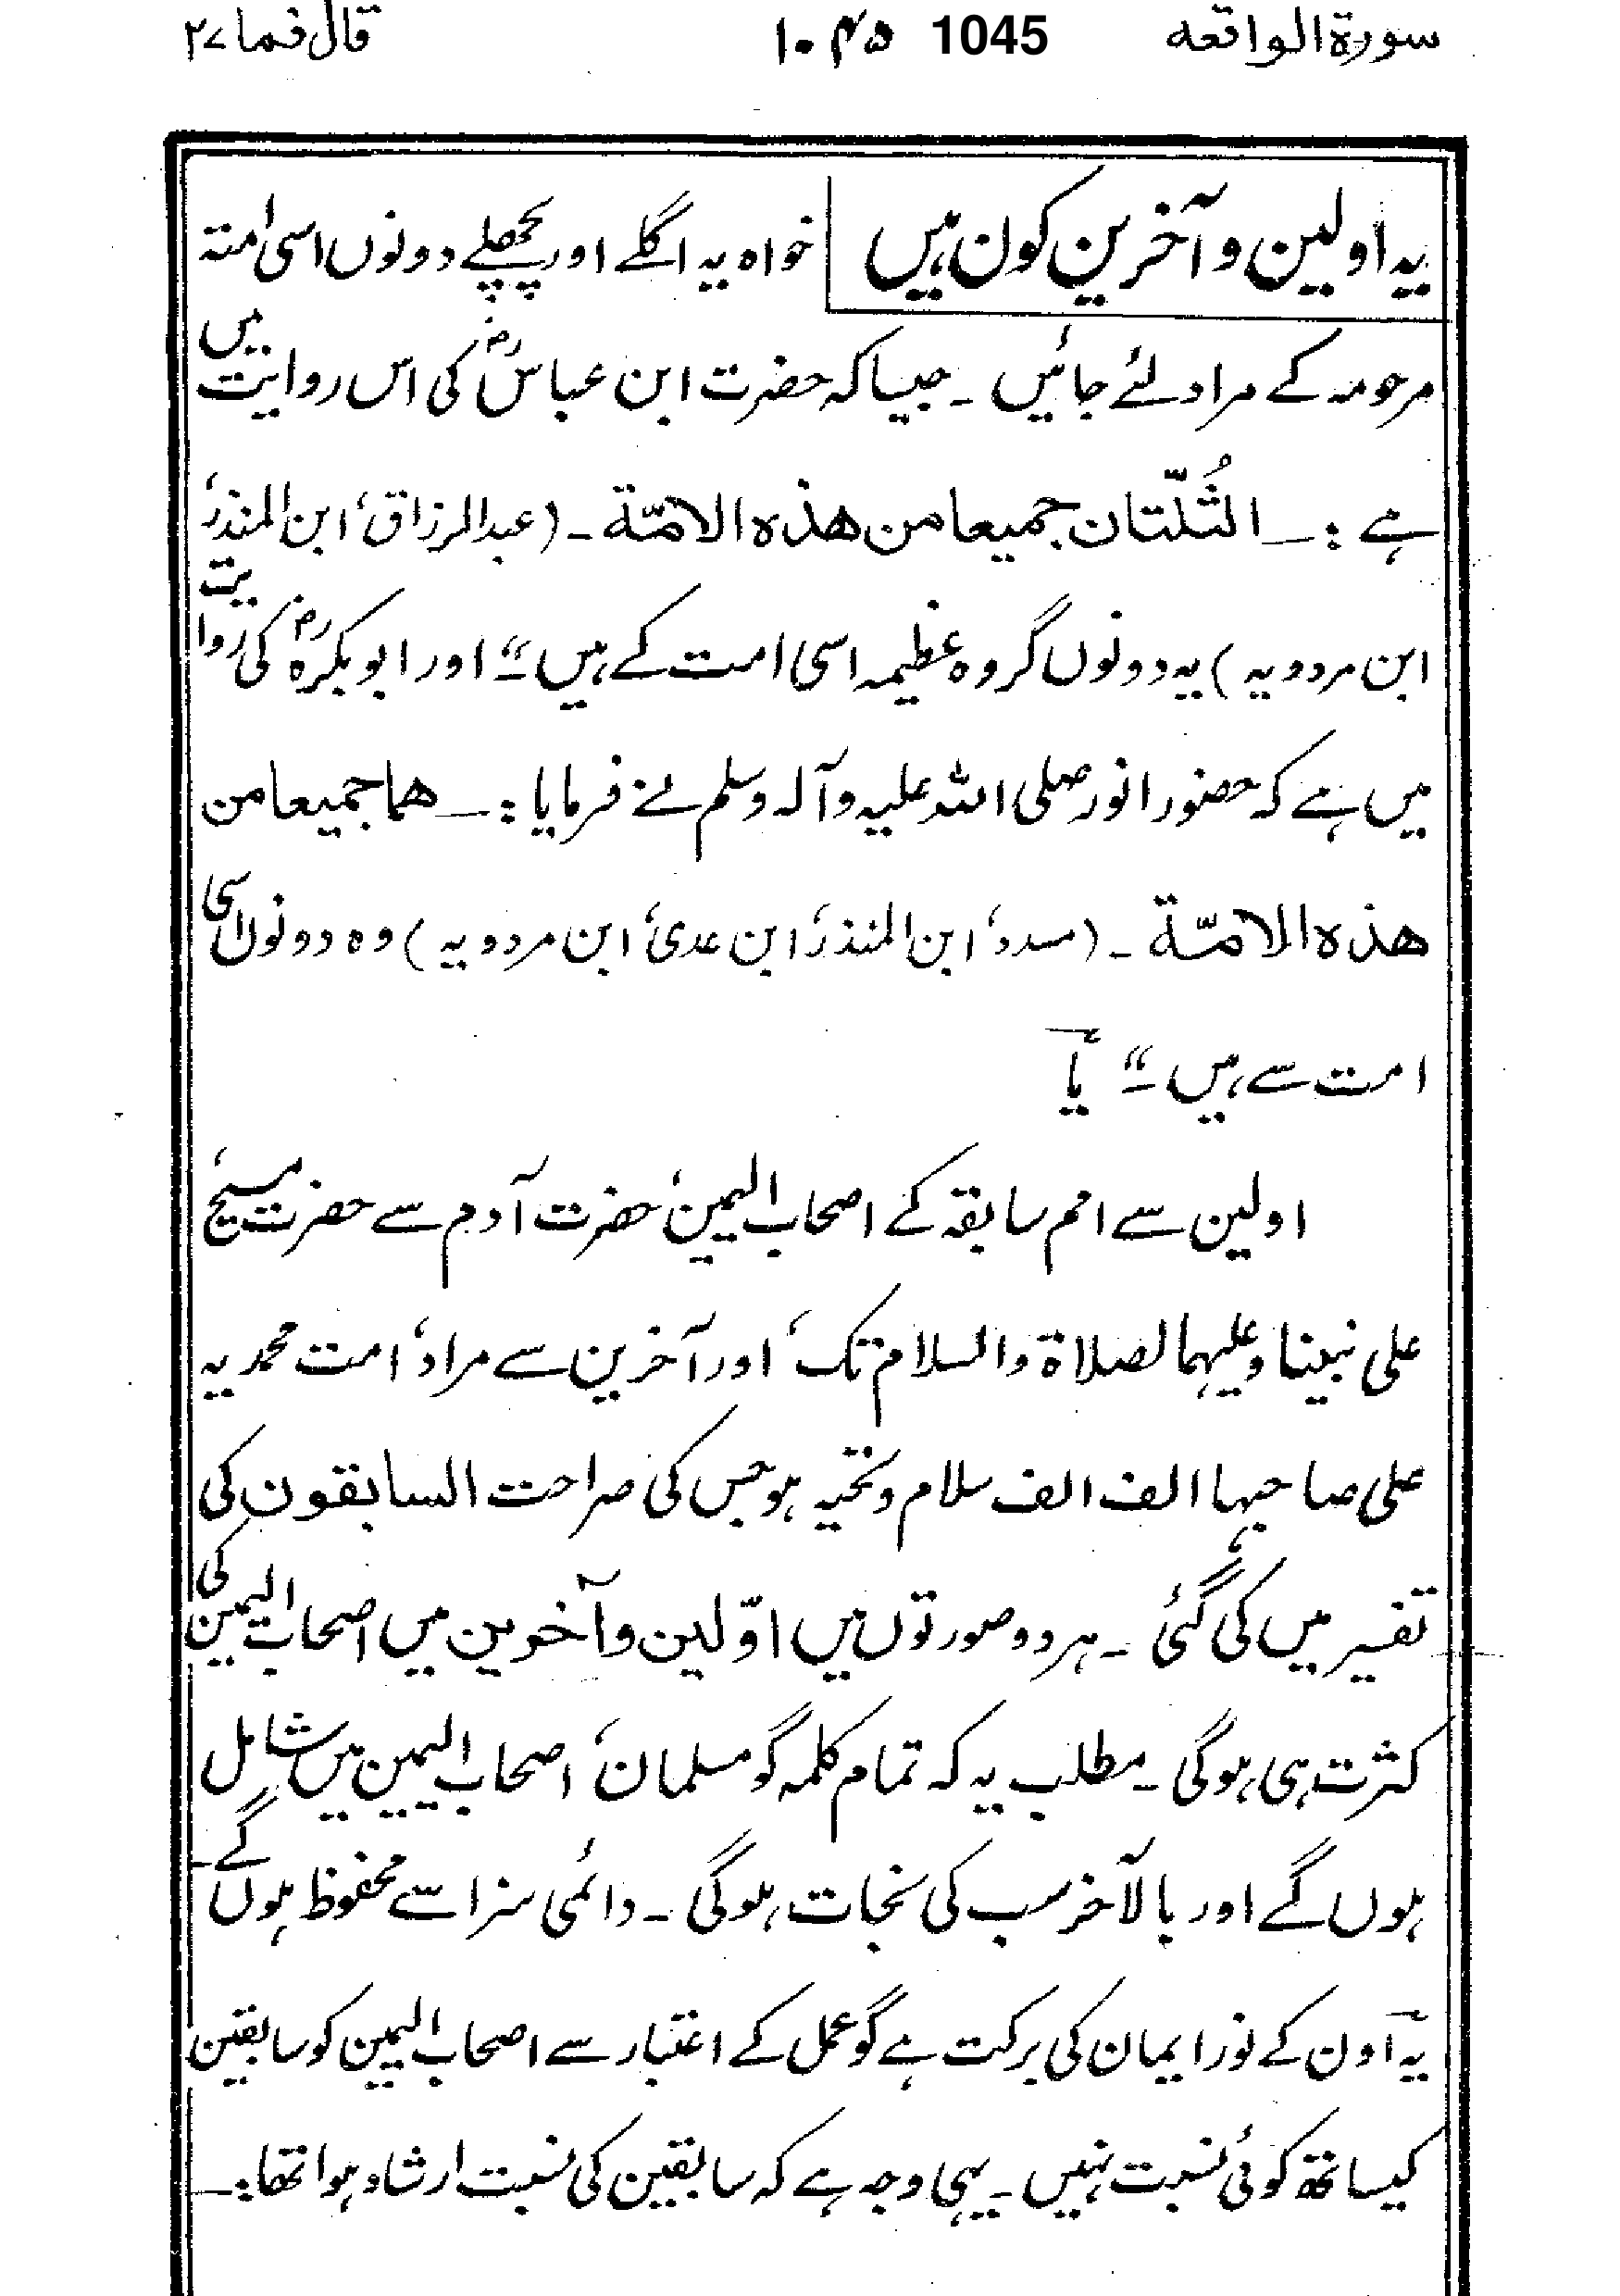 سورة الواقعه 1045 ۱۰۴۵ قال فما ۲۷
یہ اولین و آخرین کون ہیں خواہ یہ اگلے اور پچھلے دونوں اسی امتہ
مرحومہ کے مراد لئے جائیں ۔ جیسا کہ حضرت ابن عباسؓ کی اس روایت میں
ہے :۔ الثُّلّتان جمیعا من هذه الامّة ۔ (عبدالرزاق، ابن المنذر،
ابن مردویہ) یہ دونوں گروہ عظیمہ اسی امت کے ہیں ۔“ اور ابوبکرہؓ کی روایت
میں ہے کہ حضور انور صلی اللہ علیہ وآلہ وسلم نے فرمایا :۔ هما جمیعا من
هذه الامّة ۔ (مسدد، ابن المنذر، ابن عدی، ابن مردویہ) وہ دونوں اسی
امت سے ہیں ۔“ یا
اولین سے امم سابقہ کے اصحاب الیمین، حضرت آدم سے حضرت مسیح،
علی نبینا وعلیہما لصلاة والسلام تک، اور آخرین سے مراد، امت محمدیہ
علی صاحبہا الف الف سلام وتحیہ ہو جس کی صراحت السابقون کی
تفسیر میں کی گئی ۔ ہر دو صورتوں میں اوّلین وآخرین میں اصحاب الیمین کی
کثرت ہی ہوگی ۔ مطلب یہ کہ تمام کلمہ گو مسلمان، اصحاب الیمین میں شامل
ہوں گے اور بالآخر سب کی نجات ہوگی ۔ دائمی سزا سے محفوظ ہوں گے ۔
یہ اون کے نور ایمان کی برکت ہے گو عمل کے اعتبار سے اصحاب الیمین کو سابقین
کیساتھ کوئی نسبت نہیں ۔ یہی وجہ ہے کہ سابقین کی نسبت ارشاد ہوا تھا :۔